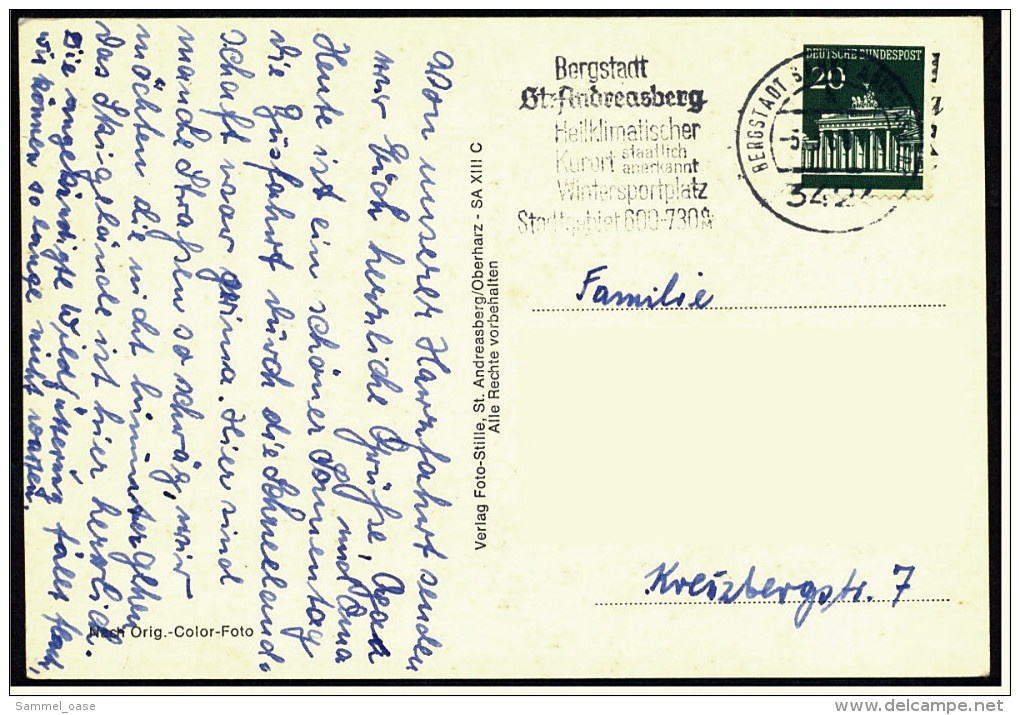 Von unserer Harzfahrt senden
wir Euch herzliche Grüße,
Heute ist ein schöner Sonnentag
die Ausfahrt durch die Schneeland-
schaft war prima. Hier sind
manche Straßen so schräg, wir
möchten die nicht hinuntergehen
Das Skigelände ist hier herrlich.
Die angekündigte Wildfütterung fällt flach,
wir können so lange nicht warten.
Nach Orig.-Color-Foto
Verlag Foto-Stille, St. Andreasberg/Oberharz - SA XIII C
Alle Rechte vorbehalten
Bergstadt
St. Andreasberg
Heilklimatischer
Kurort staatlich anerkannt
Wintersportplatz
Stadtgebiet 600-730
BERGSTADT
DEUTSCHE BUNDESPOST
20
Familie
Kreuzbergstr. 7
Sammel_oase
www.delcampe.net